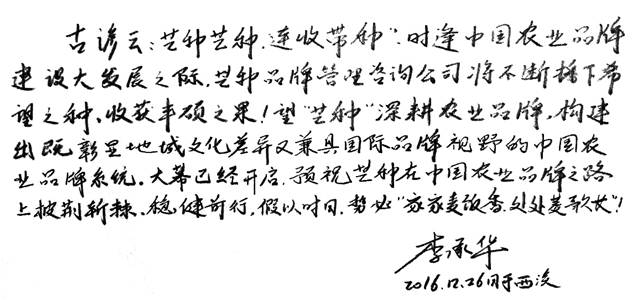 古谚云:芒种芒种,连收带种".时逢中国农业品牌
建设大发展之际,芒种品牌管理咨询公司将不断播下希
望之种,收获丰硕之果!望"芒种"深耕农业品牌,构建
出既彰显地域文化差异又兼具国际品牌视野的中国农
业品牌系统.大幕已经开启,预祝芒种在中国农业品牌之路
上披荆斩棘、稳健前行,假以时日,势必"家家麦饭香,处处菱歌长"!
李承华
2016.12.26日于西溪